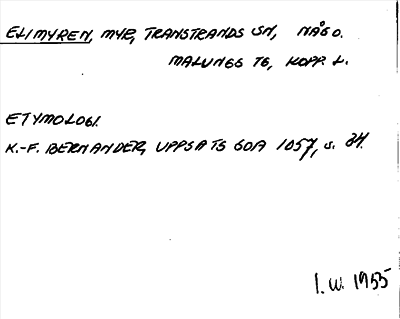 ELIMYREN, MYR, TRANSTRANDS SN, NÅS O.
MALUNGS TG, KOPP. L.
ETYMOLOGI.
K.-F. BERNANDER, UPPSATS GDA 1057, s. 34.
I. W. 1955